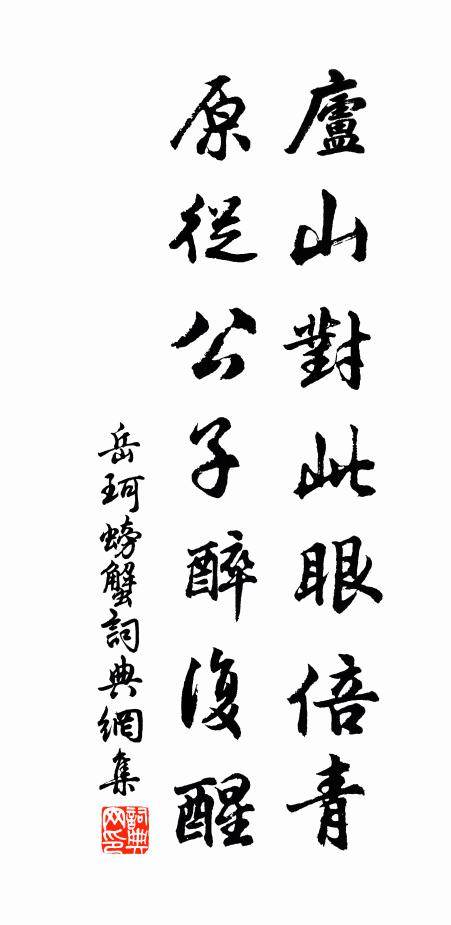 廬山對此眼倍青
原從公子醉復醒
岳珂螃蟹詞典網集
詞典網印